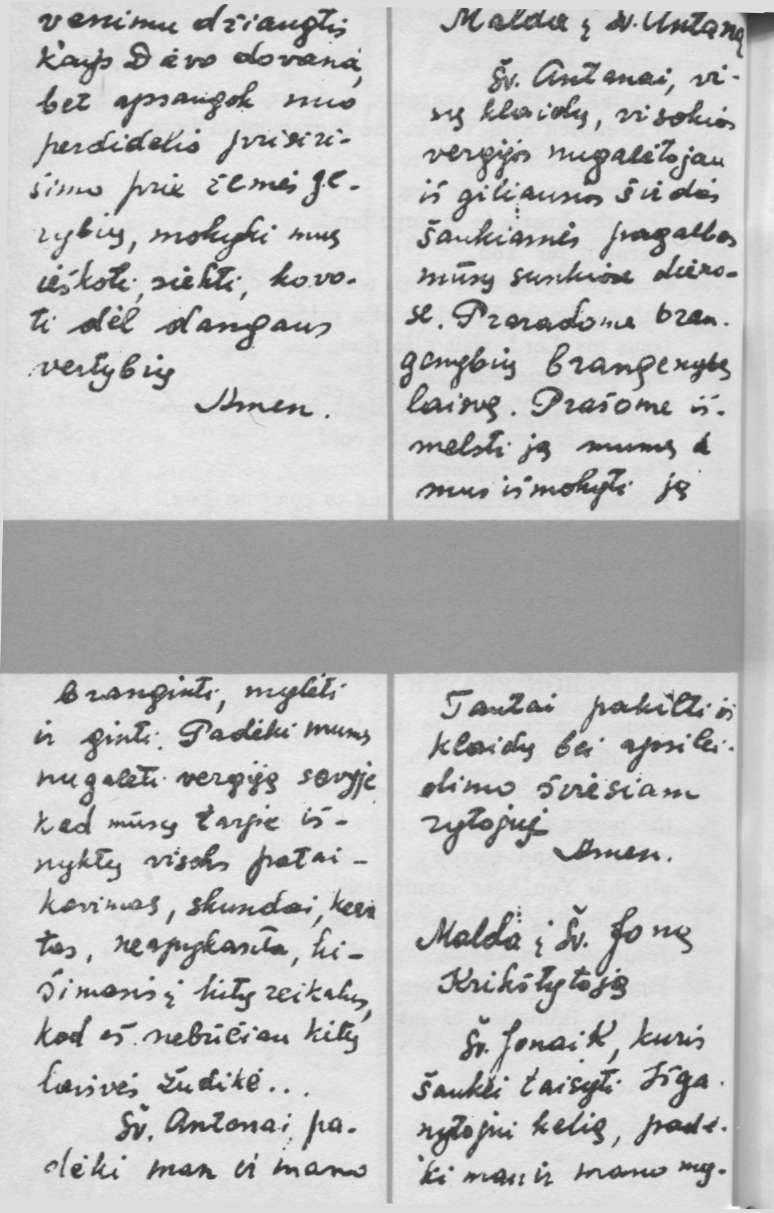 venimu džiaugtis
kaip Dievo dovana,
bet apsaugok nuo
perdidelio prisiri-
šimo prie žemės gė-
rybių, mokyki mus
ieškoti, siekti, kovo-
ti dėl dangaus
vertybių
Amen.
Malda į Šv. Antaną
Šv. Antanai, vi-
sų klaidų, visokios
vergijos nugalėtojau
iš giliausios širdies
šaukiamės pagalbos
mūsų sunkiose dieno-
se. Praradome bran-
genybių brangenybę
laisvę. Prašome iš-
melsti ją mums ir
mus išmokyti ją
branginti, mylėti
ir ginti. Padėki mums
nugalėti vergiją savyje
kad mūsų tarpe iš-
nyktų visoks patai-
kavimas, skundai, kerš
tas, neapykanta, ki-
šimasis į kitų reikalus,
kad aš nebūčiau kitų
laisvės žudikė...
Šv. Antanai pa-
dėki man ir mano
Tautai pakilti iš
klaidų bei apsilei-
dimo šviesiam
rytojui
Amen.
Malda į Šv. Joną
Krikštytoją
Šv. Jonai K, kuris
šaukei taisyti Išga-
nytojui kelią, padė-
ki man ir mano my-